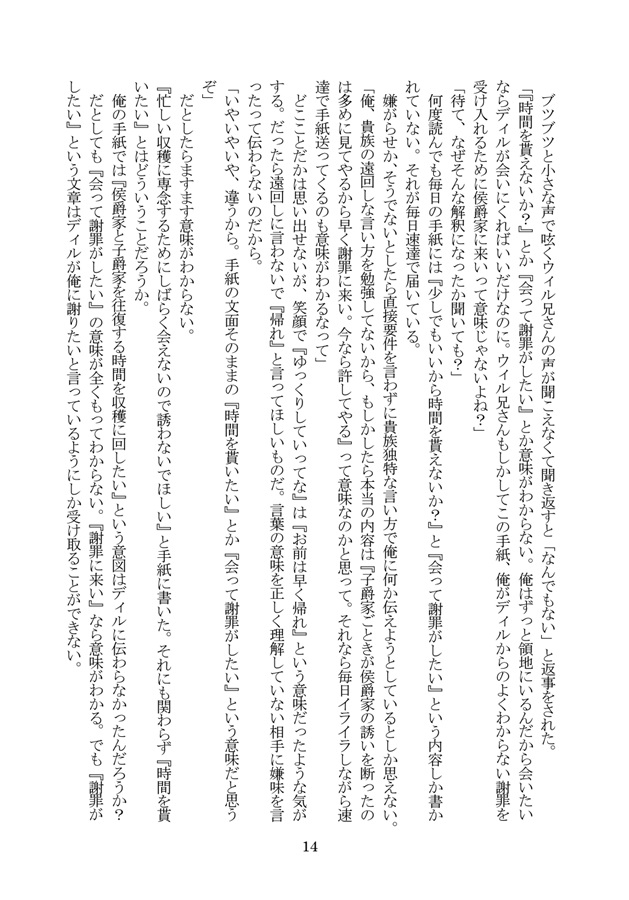 ブツブツと小さな声で呟くウィル兄さんの声が聞こえなくて聞き返すと「なんでもない」と返事をされた。
「『時間を貰えないか？』とか『会って謝罪がしたい』とか意味がわからない。俺はずっと領地にいるんだから会いたい
ならディルが会いにくればいいだけなのに。ウィル兄さんもしかしてこの手紙、俺がディルからのよくわからない謝罪を
受け入れるために侯爵家に来いって意味じゃないよね？」
「待て、なぜそんな解釈になったか聞いても？」
何度読んでも毎日の手紙には『少しでもいいから時間を貰えないか？』と『会って謝罪がしたい』という内容しか書か
れていない。それが毎日速達で届いている。
嫌がらせか、そうでないとしたら直接要件を言わずに貴族独特な言い方で俺に何か伝えようとしているとしか思えない。
「俺、貴族の遠回しな言い方を勉強してないから、もしかしたら本当の内容は『子爵家ごときが侯爵家の誘いを断ったの
は多めに見てやるから早く謝罪に来い。今なら許してやる』って意味なのかと思って。それなら毎日イライラしながら速
達で手紙送ってくるのも意味がわかるなって」
どこことだかは思い出せないが、笑顔で『ゆっくりしていってな』は『お前は早く帰れ』という意味だったような気が
する。だったら遠回しに言わないで『帰れ』と言ってほしいものだ。言葉の意味を正しく理解していない相手に嫌味を言
ったって伝わらないのだから。
「いやいやいや、違うから。手紙の文面そのままの『時間を貰いたい』とか『会って謝罪がしたい』という意味だと思う
ぞ」
だとしたらますます意味がわからない。
『忙しい収穫に専念するためにしばらく会えないので誘わないでほしい』と手紙に書いた。それにも関わらず『時間を貰
いたい』とはどういうことだろうか。
俺の手紙では『侯爵家と子爵家を往復する時間を収穫に回したい』という意図はディルに伝わらなかったんだろうか？
だとしても『会って謝罪がしたい』の意味が全くもってわからない。『謝罪に来い』なら意味がわかる。でも『謝罪が
したい』という文章はディルが俺に謝りたいと言っているようにしか受け取ることができない。
14